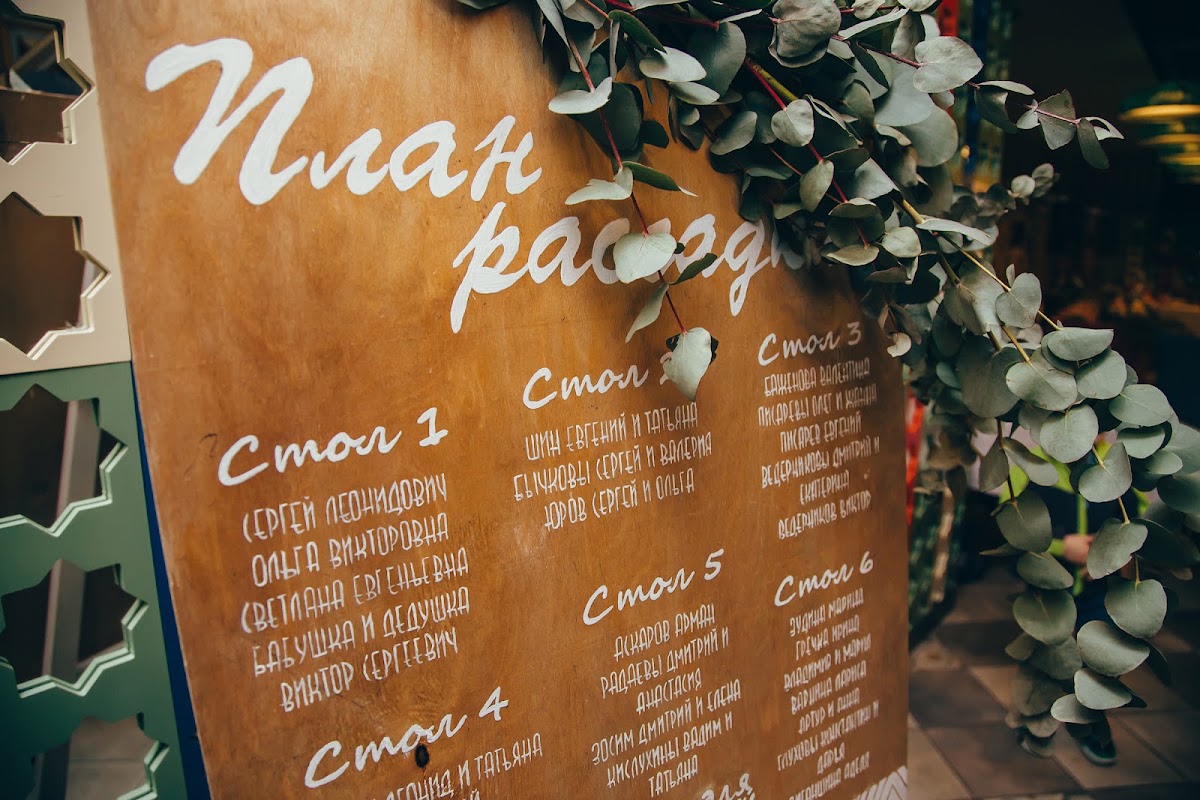 План
Стол 1
СЕРГЕЙ ЛЕОНИДОВИЧ
ОЛЬГА ВИКТОРОВНА
СВЕТЛАНА ЕВГЕНЬЕВНА
БАБУШКА И ДЕДУШКА
ВИКТОР СЕРГЕЕВИЧ
Стол
ШИН ЕВГЕНИЙ И ТАТЬЯНА
БЫЧКОВЫ СЕРГЕЙ И ВАЛЕРИЯ
ЮРОВ СЕРГЕЙ И ОЛЬГА
Стол 3
БАЖЕНОВА ВАЛЕНТИНА
ПИСАРЕВЫ ОЛЕГ И ЖАННА
ПИСАРЕВ ЕВГЕНИЙ
ВЕДЕРНИКОВЫ ДМИТРИЙ И
ЕКАТЕРИНА
ВЕДЕРНИКОВ ВИКТОР
Стол 4
И ТАТЬЯНА
Стол 5
АСКАРОВ АРМАН
РАДАЕВЫ ДМИТРИЙ И
АНАСТАСИЯ
ЗОСИМ ДМИТРИЙ И ЕЛЕНА
КИСЛУХИНЫ ВАДИМ И
ТАТЬЯНА
Стол 6
ЗУДИНА МАРИНА
ГРЕЧКА ИРИНА
ВЛАДИМИР И МАРИЯ
ЛАРИСА
АРТУР И
ГЛУХОВЫ КОНСТАНТИН И
ДАРЬЯ
АДЕЛЯ